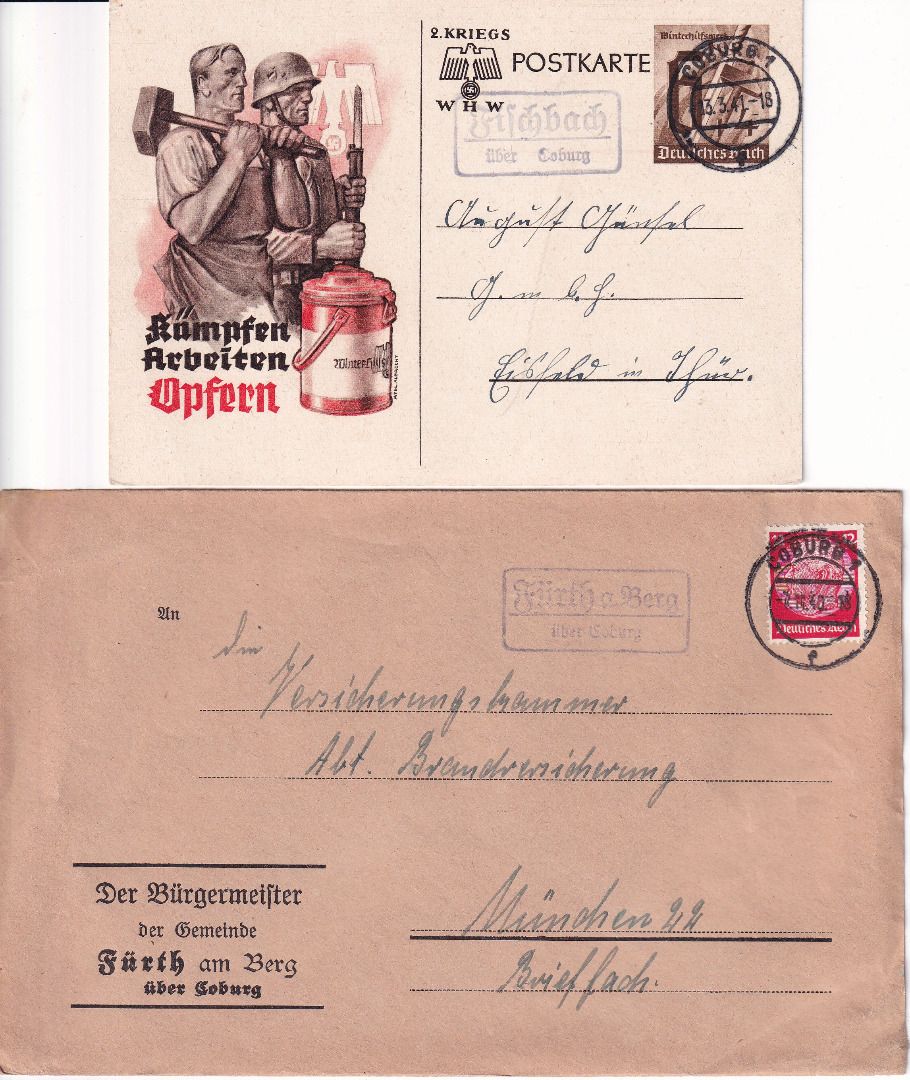 2. KRIEGS
WHW
POSTKARTE
Winterhilfswerk
Deutsches Reich
COBURG 1
Fischbach
über Coburg
August Gänsel
G. m. b. H.
Eisfeld in Thür.
Kämpfen
Arbeiten
Opfern
Winterhilfs
COBURG 1
Deutsches Reich
Fürth a Berg
über Coburg
An
die
Versicherungskammer
Abt. Brandversicherung
München 22
Brieffach.
Der Bürgermeister
der Gemeinde
Fürth am Berg
über Coburg